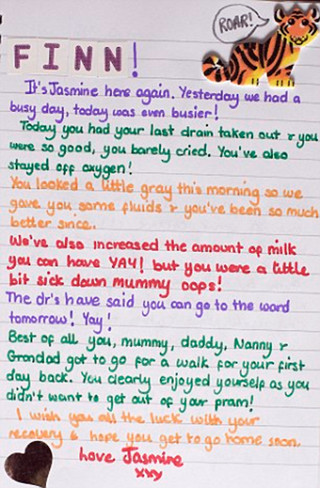 ROAR!
FINN!
It's Jasmine here again. Yesterday we had a
busy day, today was even busier!
Today you had your last drain taken out & you
were so good, you barely cried. You've also
stayed off oxygen!
You looked a little gray this morning so we
gave you some fluids & you've been so much
better since.
We've also increased the amount of milk
you can have YAY! but you were a little
bit sick down mummy oops!
The dr's have said you can go to the ward
tomorrow! Yay!
Best of all you, mummy, daddy, Nanny &
Grandad got to go for a walk for your first
day back. You clearly enjoyed yourself as you
didn't want to get out of your pram!
I wish you all the luck with your
recovery & hope you get to go home soon.
Love Jasmine
xxx